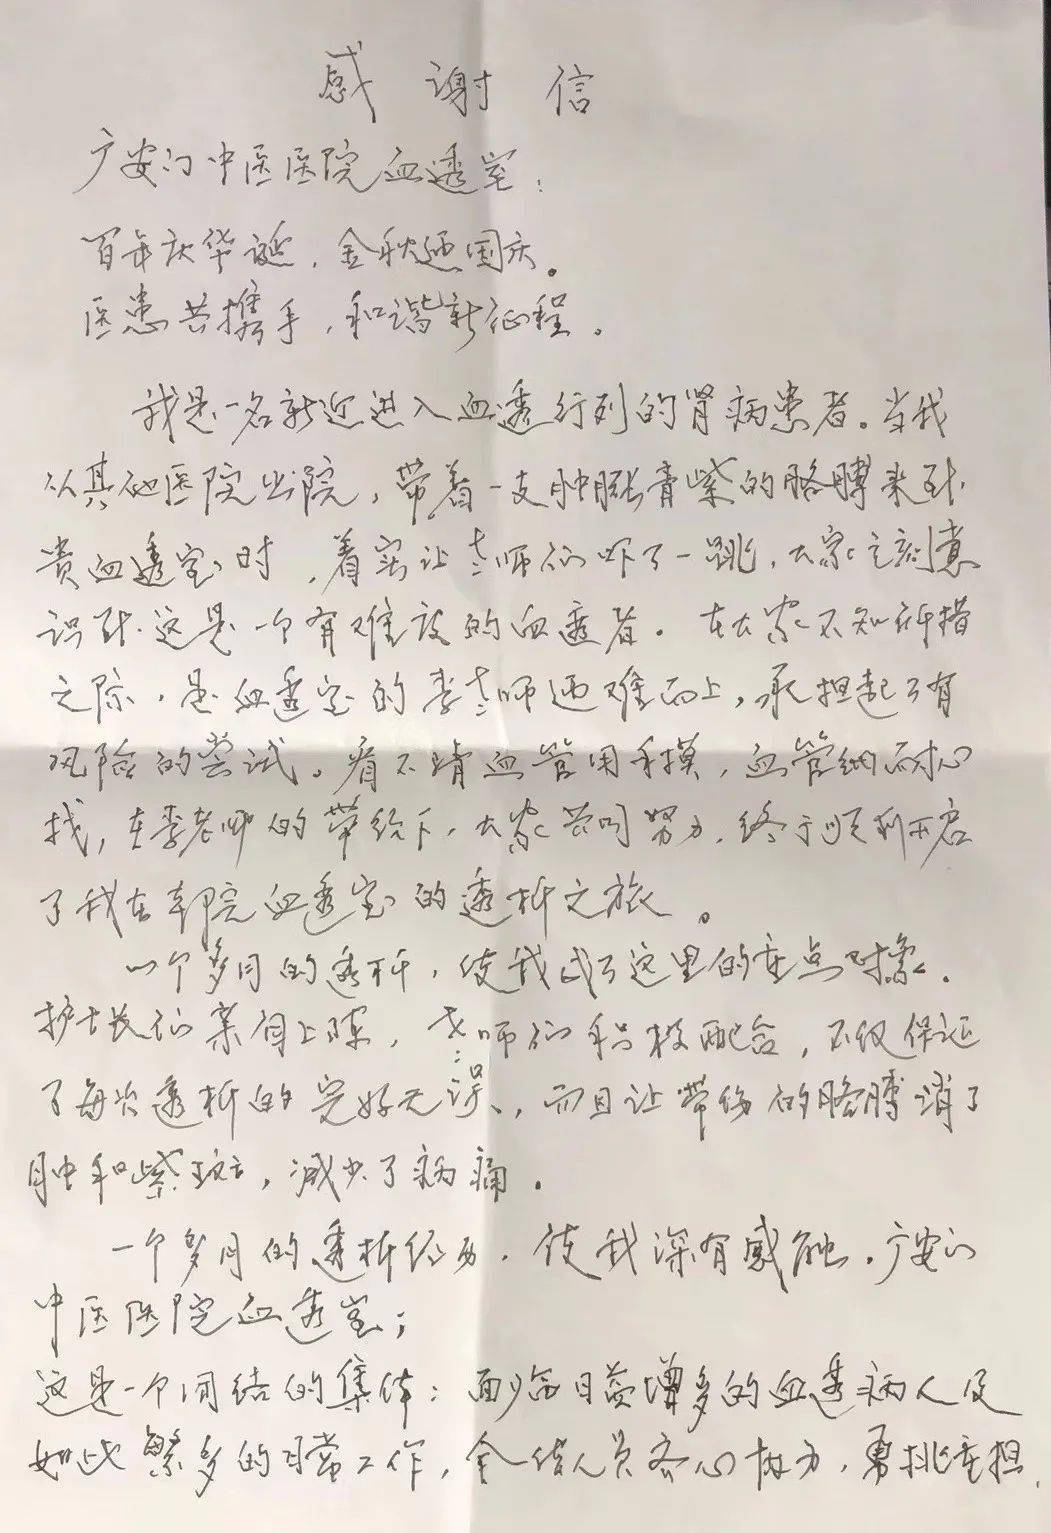 感谢信
广安门中医医院血透室:
百年庆华诞，金秋迎国庆。
医患共携手，和谐新征程。
我是一名新近进入血透行列的肾病患者。当我
从其他医院出院，带着一支肿胀青紫的胳膊来到
贵血透室时，着实让老师们吓了一跳，大家立刻意
识到这是一个有难度的血透者。在大家不知所措
之际，是血透室的李老师迎难而上，承担起了有
风险的尝试。看不清血管用手摸，血管细而耐心
找，在李老师的带领下，大家共同努力，终于顺利开启
了我在本院血透室的透析之旅。
一个多月的透析，使我成了这里的重点对象。
护士长们亲自上阵，老师们积极配合，不仅保证
了每次透析的完好无误，而且让带伤的胳膊消了
肿和紫斑，减少了病痛。
一个多月的透析经历，使我深有感触。广安门
中医医院血透室；
这是一个团结的集体：面临日益增多的血透病人及
如此繁多的日常工作，全体人员齐心协力，勇挑重担，